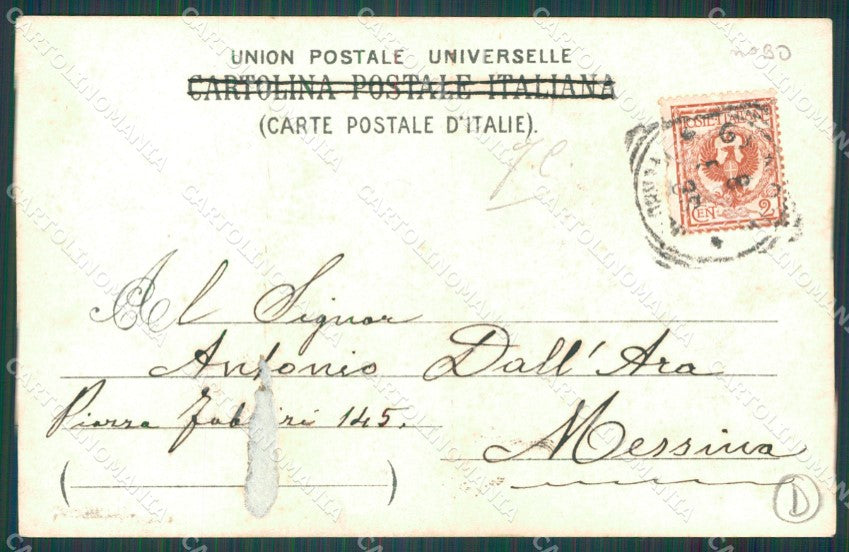 UNION POSTALE UNIVERSELLE
CARTOLINA POSTALE ITALIANA
(CARTE POSTALE D'ITALIE).
POSTE ITALIANE
CEN 2
Al Signor
Antonio Dall'Ara
Piazza 145.
Messina
D
CARTOLINOMANIA